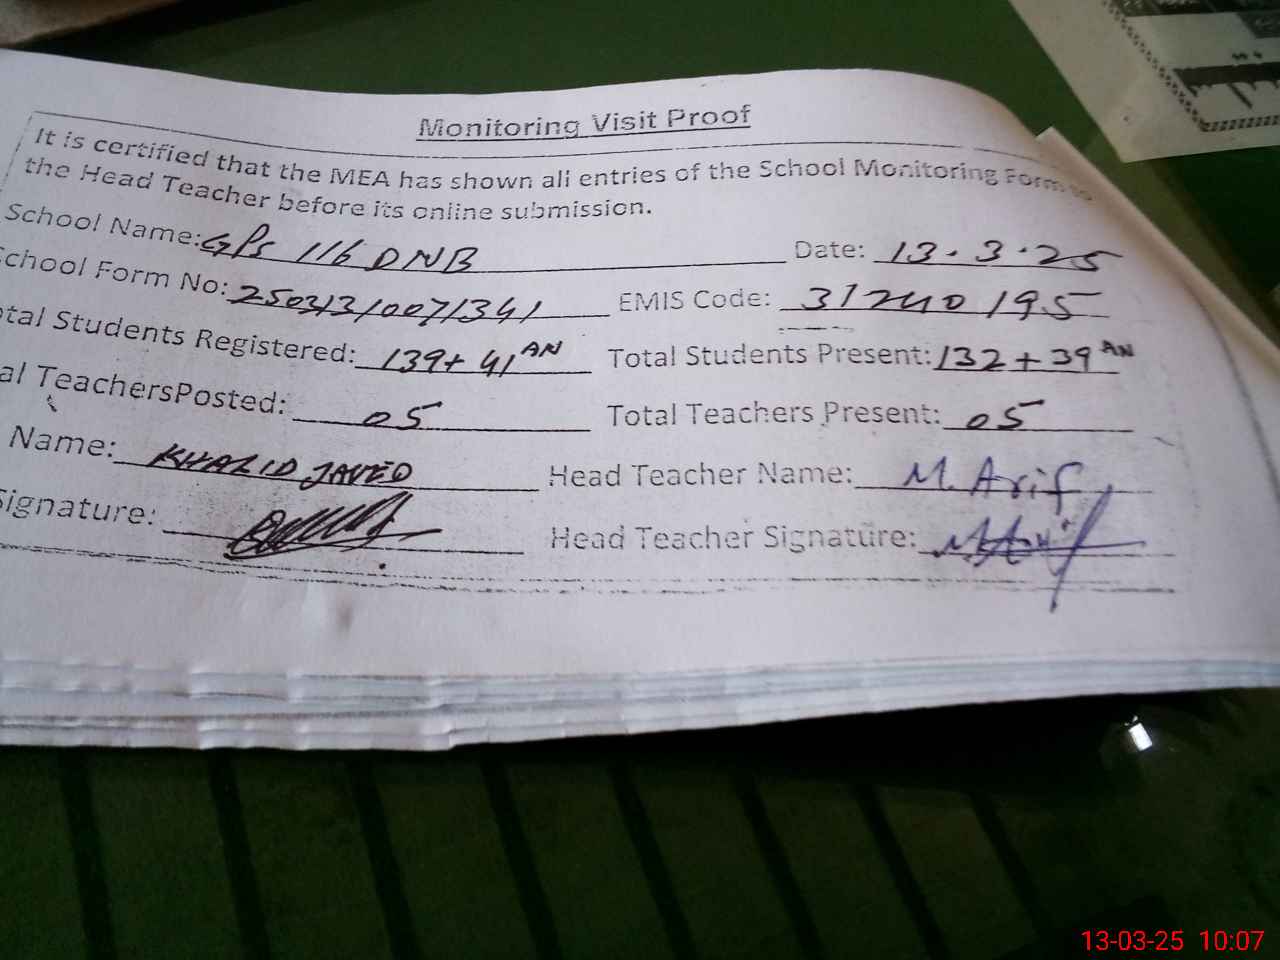 Monitoring Visit Proof
It is certified that the MEA has shown all entries of the School Monitoring Form to
the Head Teacher before its online submission.
School Name: GPS 116 DNB Date: 13.3.25
School Form No: 250313/0071341 EMIS Code: 31240195
otal Students Registered: 139+41 AN Total Students Present: 132+39 AN
al TeachersPosted: 05 Total Teachers Present: 05
Name: KHALID JAVED Head Teacher Name: M. Arif
Signature: Head Teacher Signature: M. Arif
13-03-25 10:07